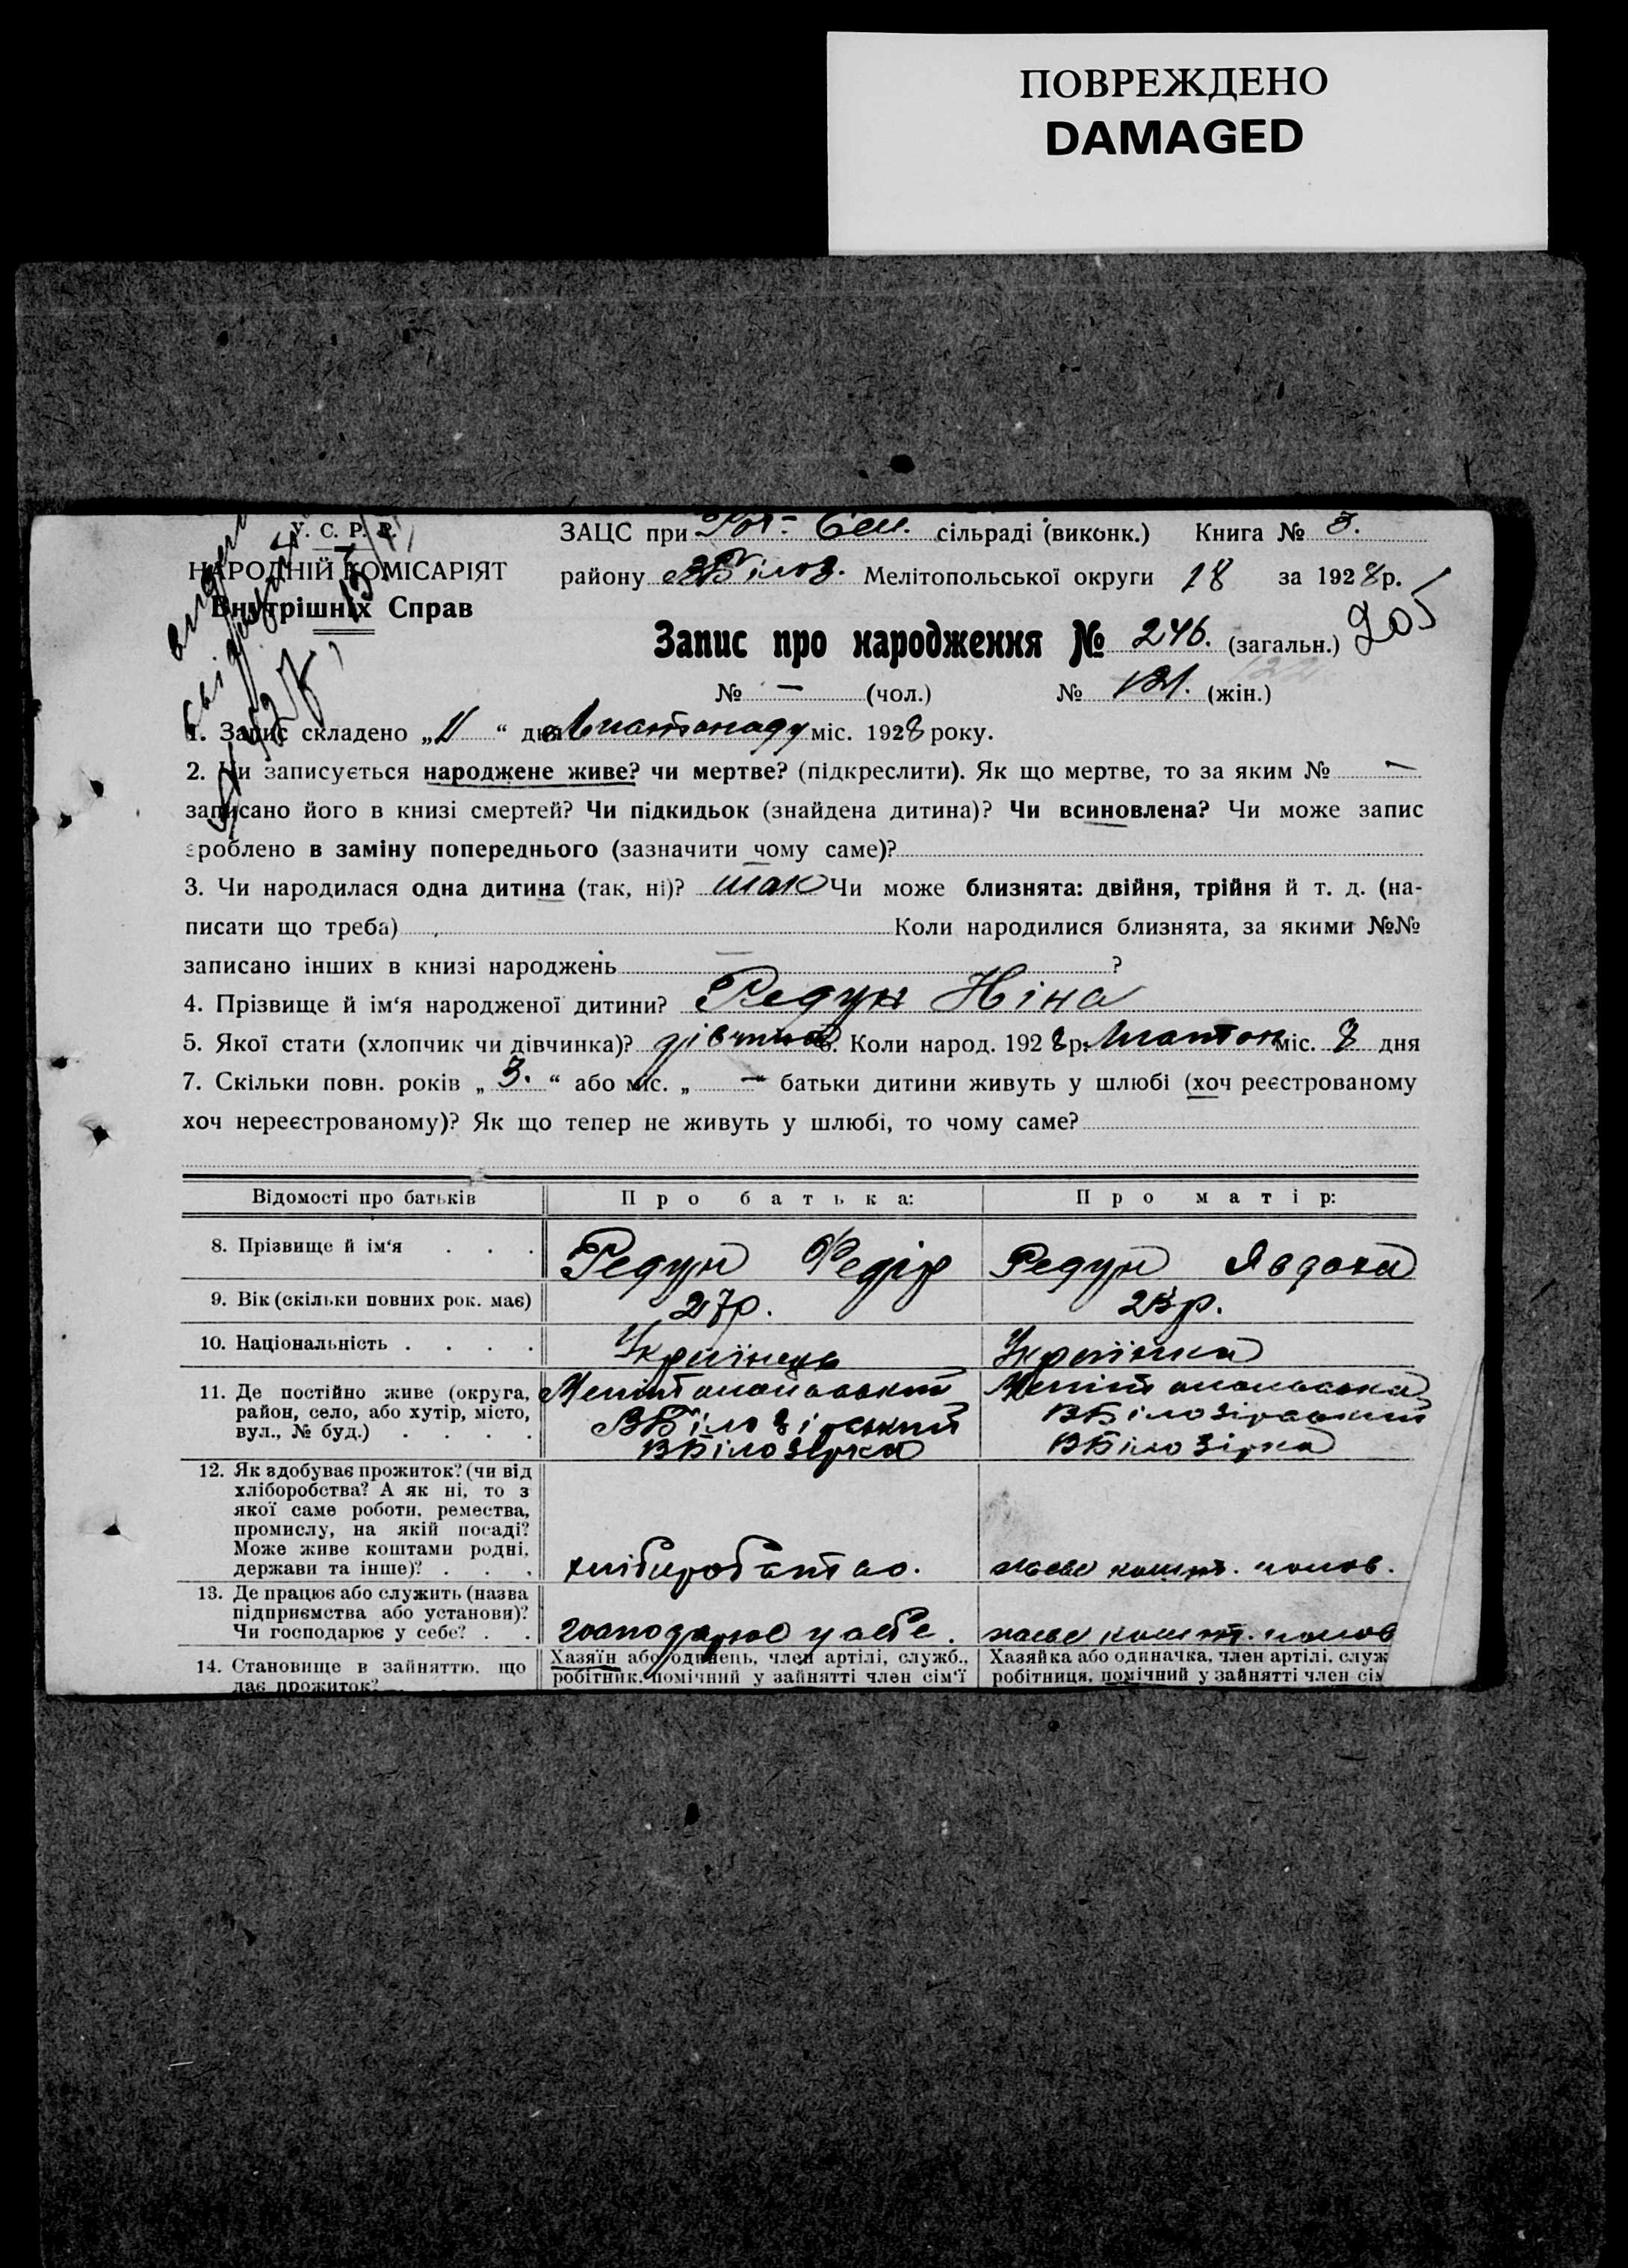 ПОВРЕЖДЕНО
DAMAGED
У. С. Р. Р.
НАРОДНІЙ КОМІСАРІЯТ
Внутрішніх Справ
ЗАЦС при сільраді (виконк.) Книга № 3.
району ВБілоз. Мелітопольської округи 18 за 1928 р.
Запис про народження № 246. (загальн.) 205
№ — (чол.) № 121. (жін.)
1. Запис складено „11“ дня Листопаду міс. 1928 року.
2. Чи записується народжене живе? чи мертве? (підкреслити). Як що мертве, то за яким № —
записано його в книзі смертей? Чи підкидьок (знайдена дитина)? Чи всиновлена? Чи може запис
зроблено в заміну попереднього (зазначити чому саме)?
3. Чи народилася одна дитина (так, ні)? так Чи може близнята: двійня, трійня й т. д. (на-
писати що треба) Коли народилися близнята, за якими №№
записано інших в книзі народжень ?
4. Прізвище й ім‘я народженої дитини? Редун Ніна
5. Якої стати (хлопчик чи дівчинка)? дівчина 6. Коли народ. 1928 р. Листоп міс. 8 дня
7. Скільки повн. років „3.“ або міс. „—“ батьки дитини живуть у шлюбі (хоч реєстрованому
хоч нереєстрованому)? Як що тепер не живуть у шлюбі, то чому саме?
Відомості про батьків Про батька: Про матір:
8. Прізвище й ім‘я . . . Редун Федір Редун Явдоха
9. Вік (скільки повних рок. має) 27р. 23р.
10. Національність . . . . Українець Українка
11. Де постійно живе (округа, Мелітопольський Мелітопольська
район, село, або хутір, місто, ВБілозірський ВБілозірський
вул., № буд.) . . . . ВБілозерка ВБілозірка
12. Як здобуває прожиток? (чи від
хліборобства? А як ні, то з
якої саме роботи, ремества,
промислу, на якій посаді?
Може живе коштами родні,
держави та інше)? . . . хліборобство. живе кошт. чолов.
13. Де працює або служить (назва
підприємства або установи)?
Чи господарює у себе? . . господарює у себе. живе кошт. чолов
14. Становище в зайняттю, що Хазяїн або одинець, член артілі, служб., Хазяйка або одиначка, член артілі, служ
дає прожиток? робітник, помічний у зайнятті член сім‘ї робітниця, помічний у зайнятті член сім